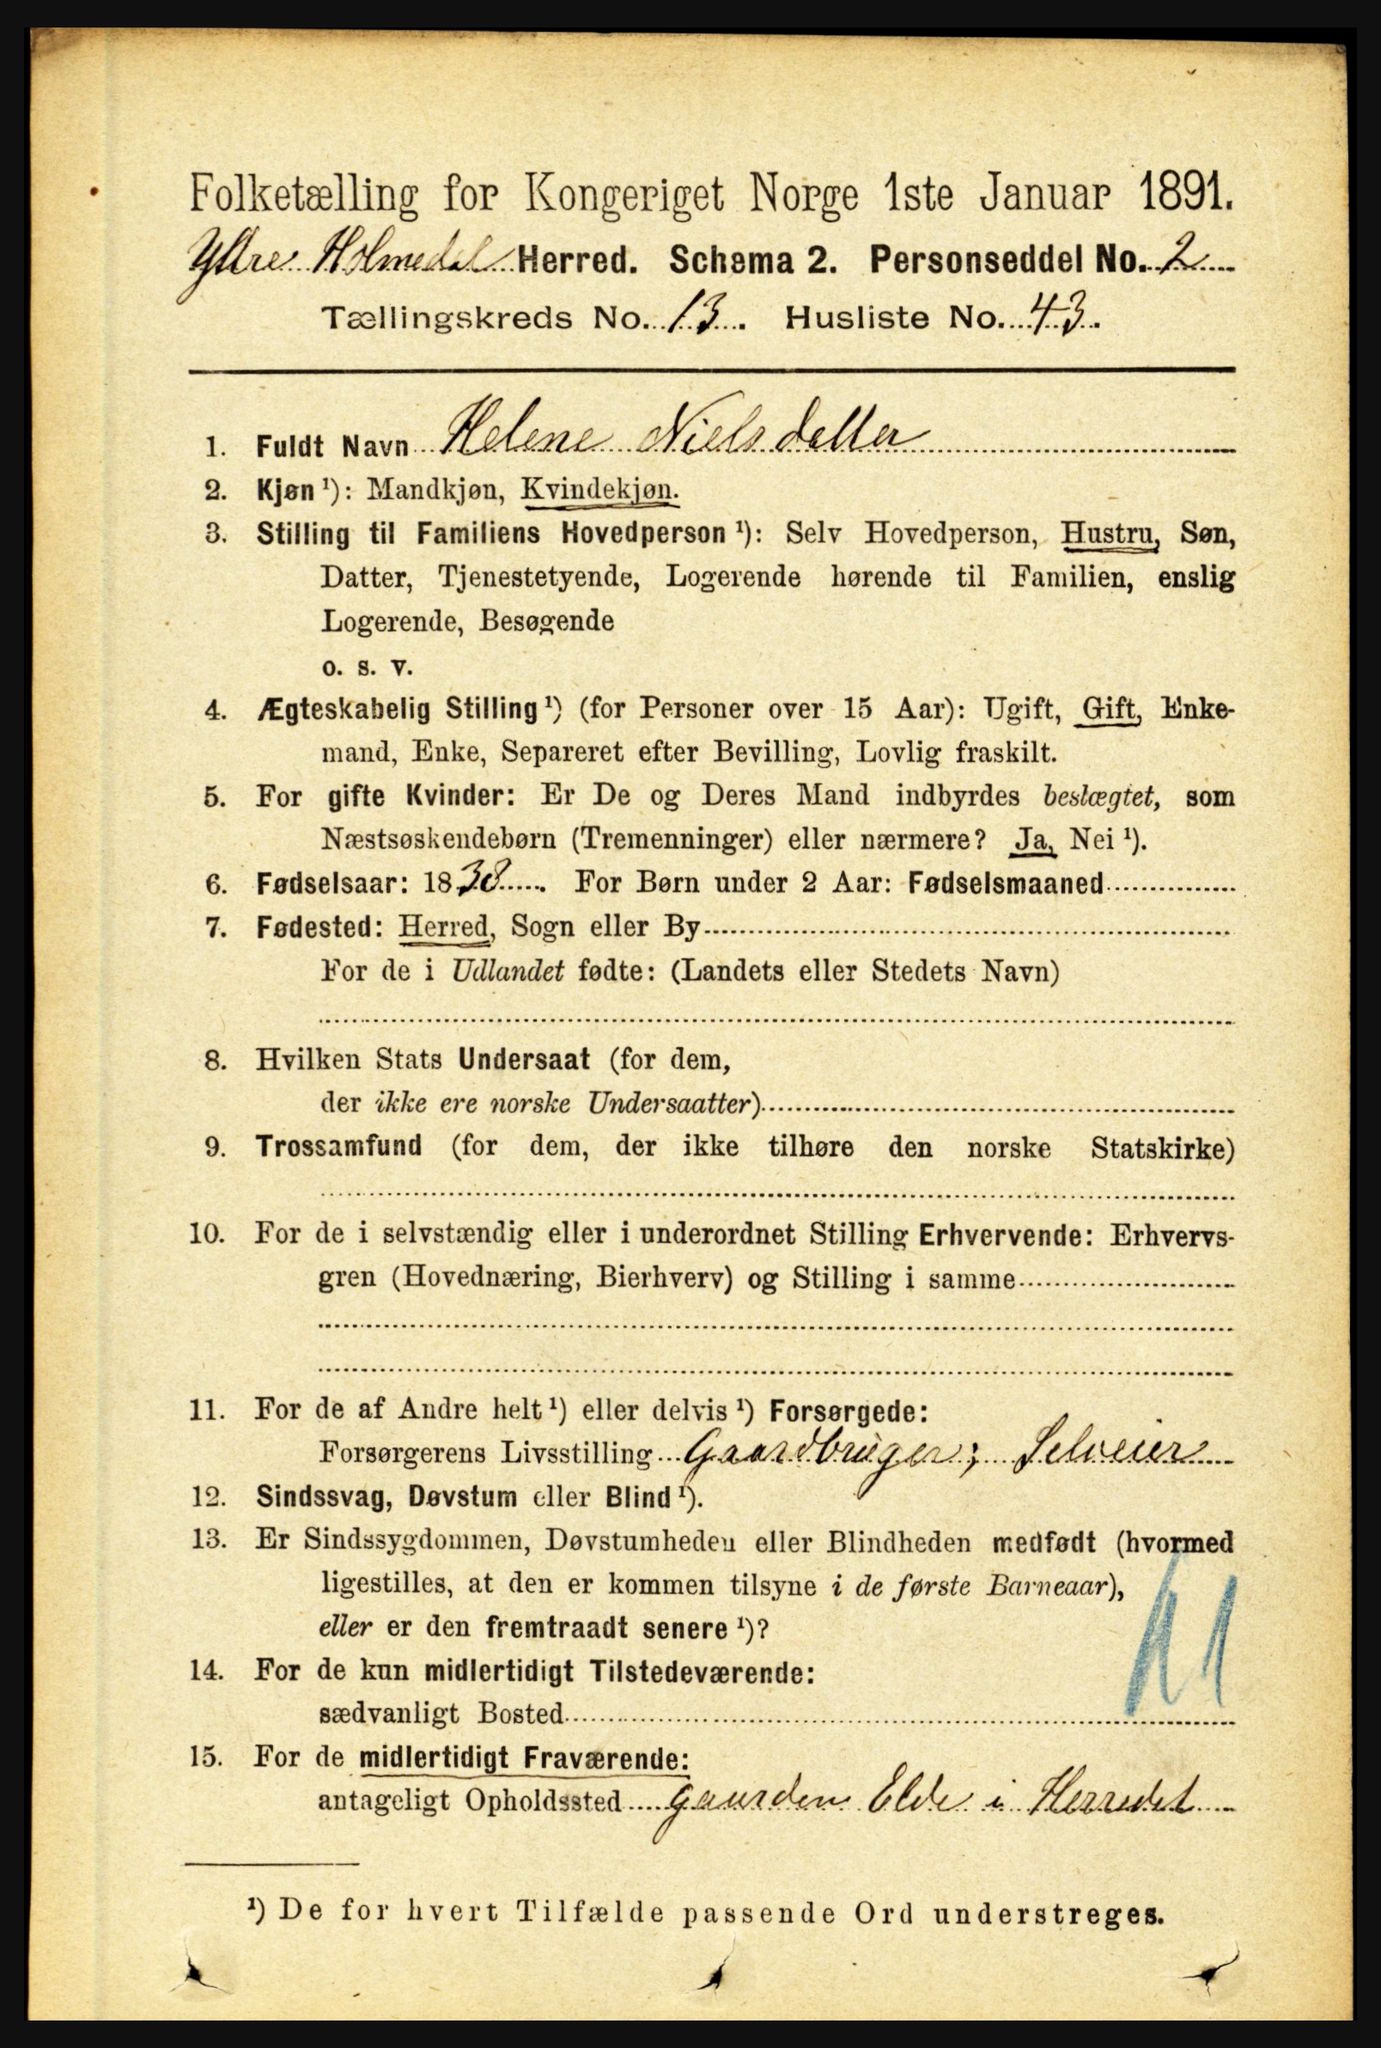 Folketælling for Kongeriget Norge 1ste Januar 1891.
Ytre Holmedal Herred. Schema 2. Personseddel No. 2
Tællingskreds No. 13. Husliste No. 43.
1. Fuldt Navn Helene Nielsdatter
2. Kjøn ¹): Mandkjøn, Kvindekjøn.
3. Stilling til Familiens Hovedperson ¹): Selv Hovedperson, Hustru, Søn,
Datter, Tjenestetyende, Logerende hørende til Familien, enslig
Logerende, Besøgende
o. s. v.
4. Ægteskabelig Stilling ¹) (for Personer over 15 Aar): Ugift, Gift, Enke-
mand, Enke, Separeret efter Bevilling, Lovlig fraskilt.
5. For gifte Kvinder: Er De og Deres Mand indbyrdes beslægtet, som
Næstsøskendebørn (Tremenninger) eller nærmere? Ja, Nei ¹).
6. Fødselsaar: 1838. For Børn under 2 Aar: Fødselsmaaned
7. Fødested: Herred, Sogn eller By
For de i Udlandet fødte: (Landets eller Stedets Navn)
8. Hvilken Stats Undersaat (for dem,
der ikke ere norske Undersaatter)
9. Trossamfund (for dem, der ikke tilhøre den norske Statskirke)
10. For de i selvstændig eller i underordnet Stilling Erhvervende: Erhvervs-
gren (Hovednæring, Bierhverv) og Stilling i samme
11. For de af Andre helt ¹) eller delvis ¹) Forsørgede:
Forsørgerens Livsstilling Gaardbruger; Selveier
12. Sindssvag, Døvstum eller Blind ¹).
13. Er Sindssygdommen, Døvstumheden eller Blindheden medfødt (hvormed
ligestilles, at den er kommen tilsyne i de første Barneaar),
eller er den fremtraadt senere ¹)?
14. For de kun midlertidigt Tilstedeværende:
sædvanligt Bosted
15. For de midlertidigt Fraværende:
antageligt Opholdssted Gaarden Elde i Herredet
¹) De for hvert Tilfælde passende Ord understreges.